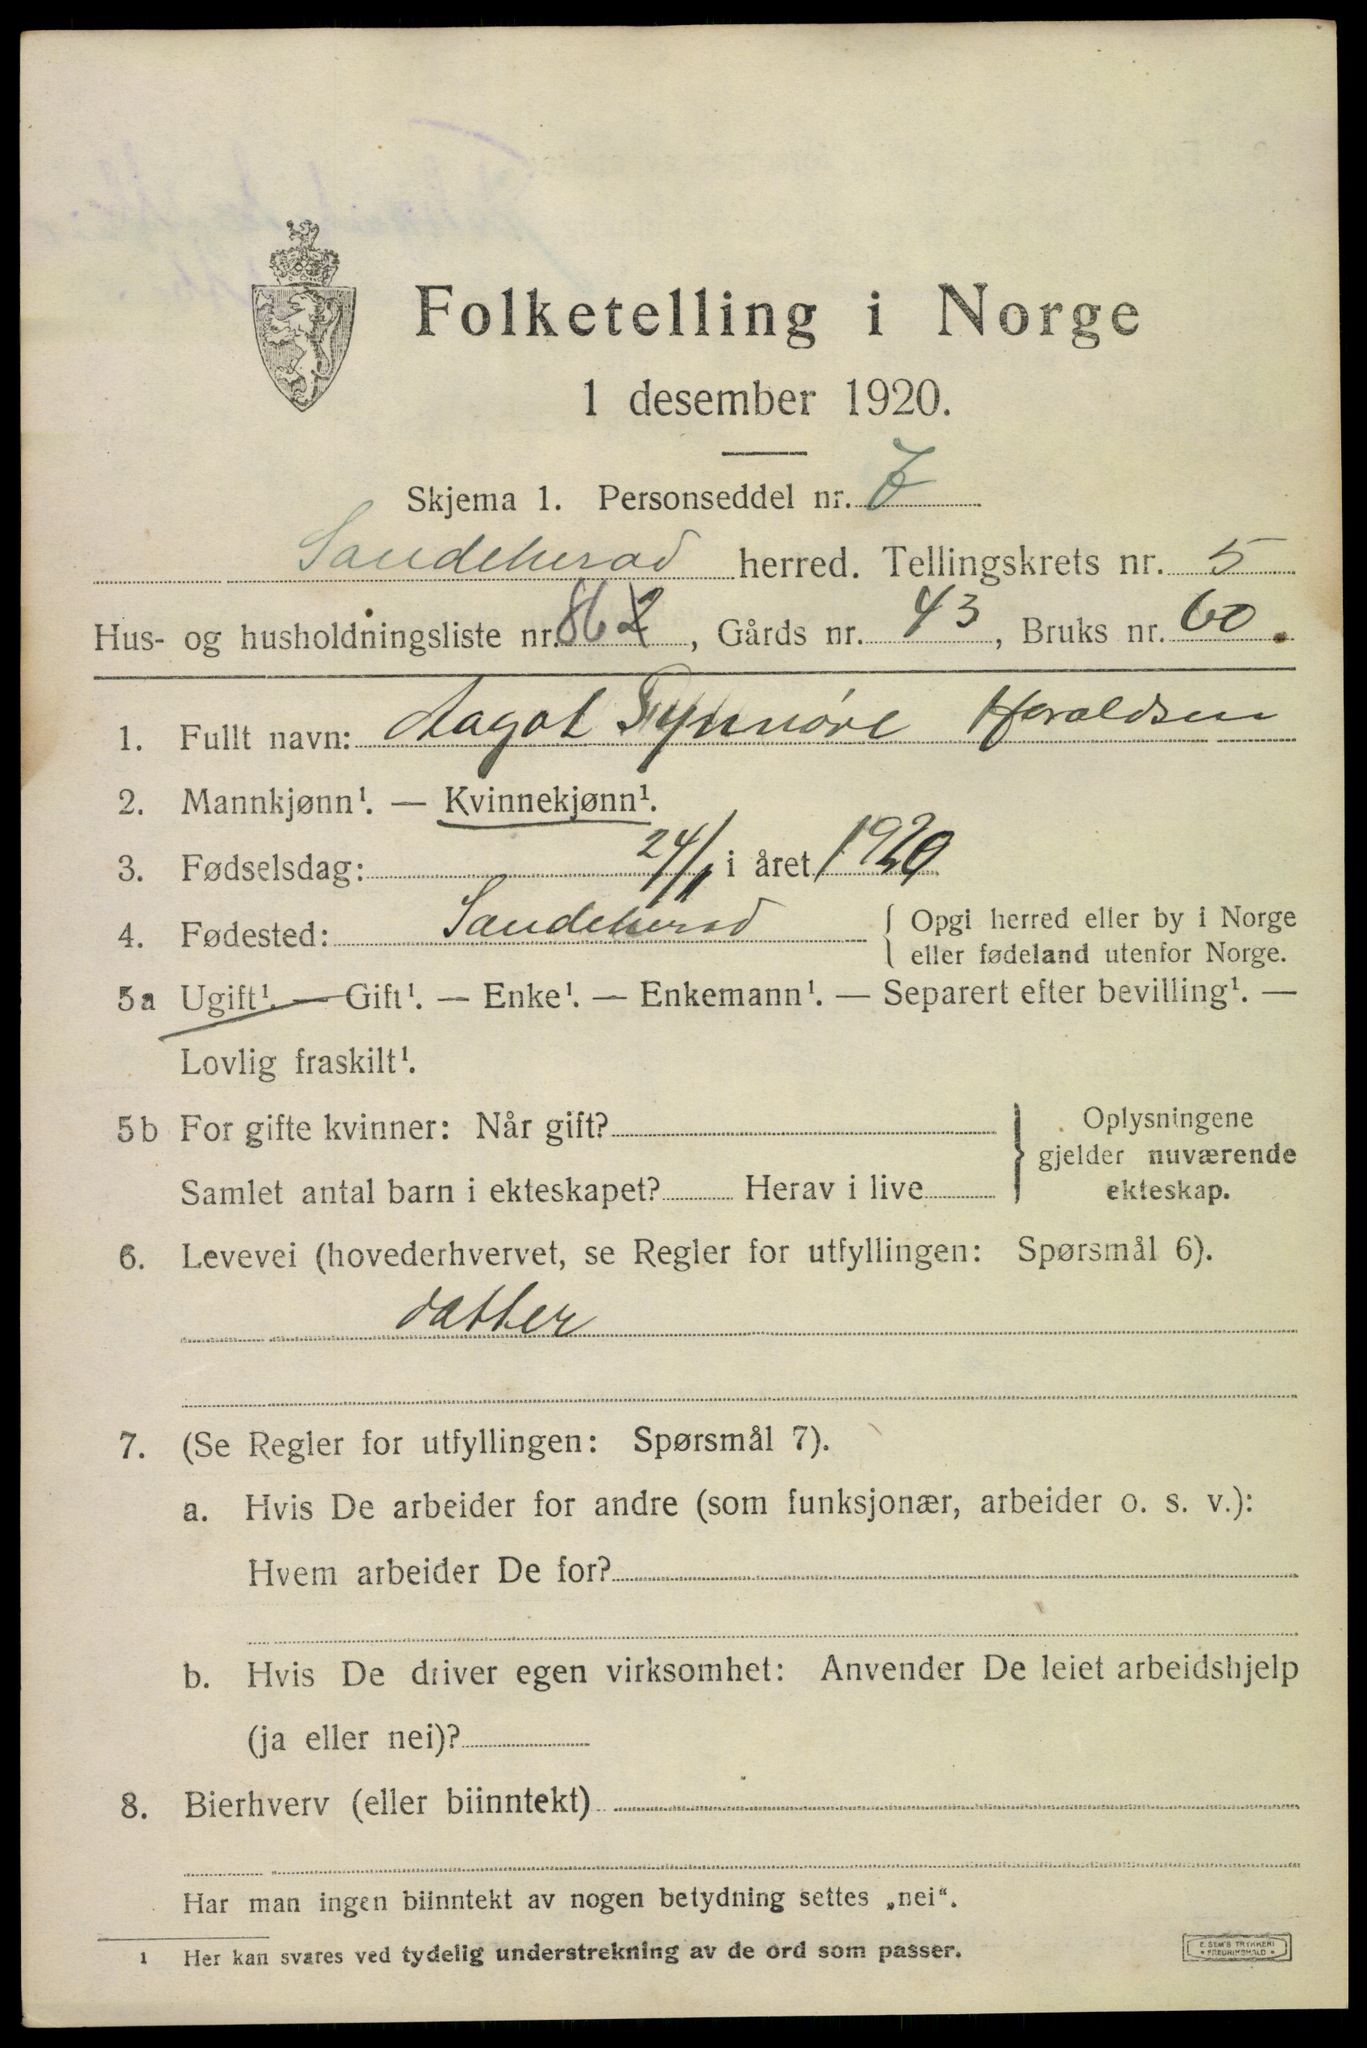 Folketelling i Norge
1 desember 1920.
Skjema 1. Personseddel nr. 7
Sandeherad herred. Tellingskrets nr. 5
Hus- og husholdningsliste nr. 86, Gårds nr. 43, Bruks nr. 60.
1. Fullt navn: Aagot Synnøve Haraldsen
2. Mannkjønn¹. — Kvinnekjønn¹.
3. Fødselsdag: 24/1 i året 1920
4. Fødested: Sandeherad { Opgi herred eller by i Norge
eller fødeland utenfor Norge.
5a Ugift¹. — Gift¹. — Enke¹. — Enkemann¹. — Separert efter bevilling¹. —
Lovlig fraskilt¹.
5b For gifte kvinner: Når gift? } Oplysningene
gjelder nuværende
Samlet antal barn i ekteskapet? Herav i live ekteskap.
6. Levevei (hovederhvervet, se Regler for utfyllingen: Spørsmål 6).
datter
7. (Se Regler for utfyllingen: Spørsmål 7).
a. Hvis De arbeider for andre (som funksjonær, arbeider o. s. v.):
Hvem arbeider De for?
b. Hvis De driver egen virksomhet: Anvender De leiet arbeidshjelp
(ja eller nei)?
8. Bierhverv (eller biinntekt)
Har man ingen biinntekt av nogen betydning settes „nei“.
¹ Her kan svares ved tydelig understrekning av de ord som passer.
E. SEM'S TRYKKERI
FREDRIKSHALD